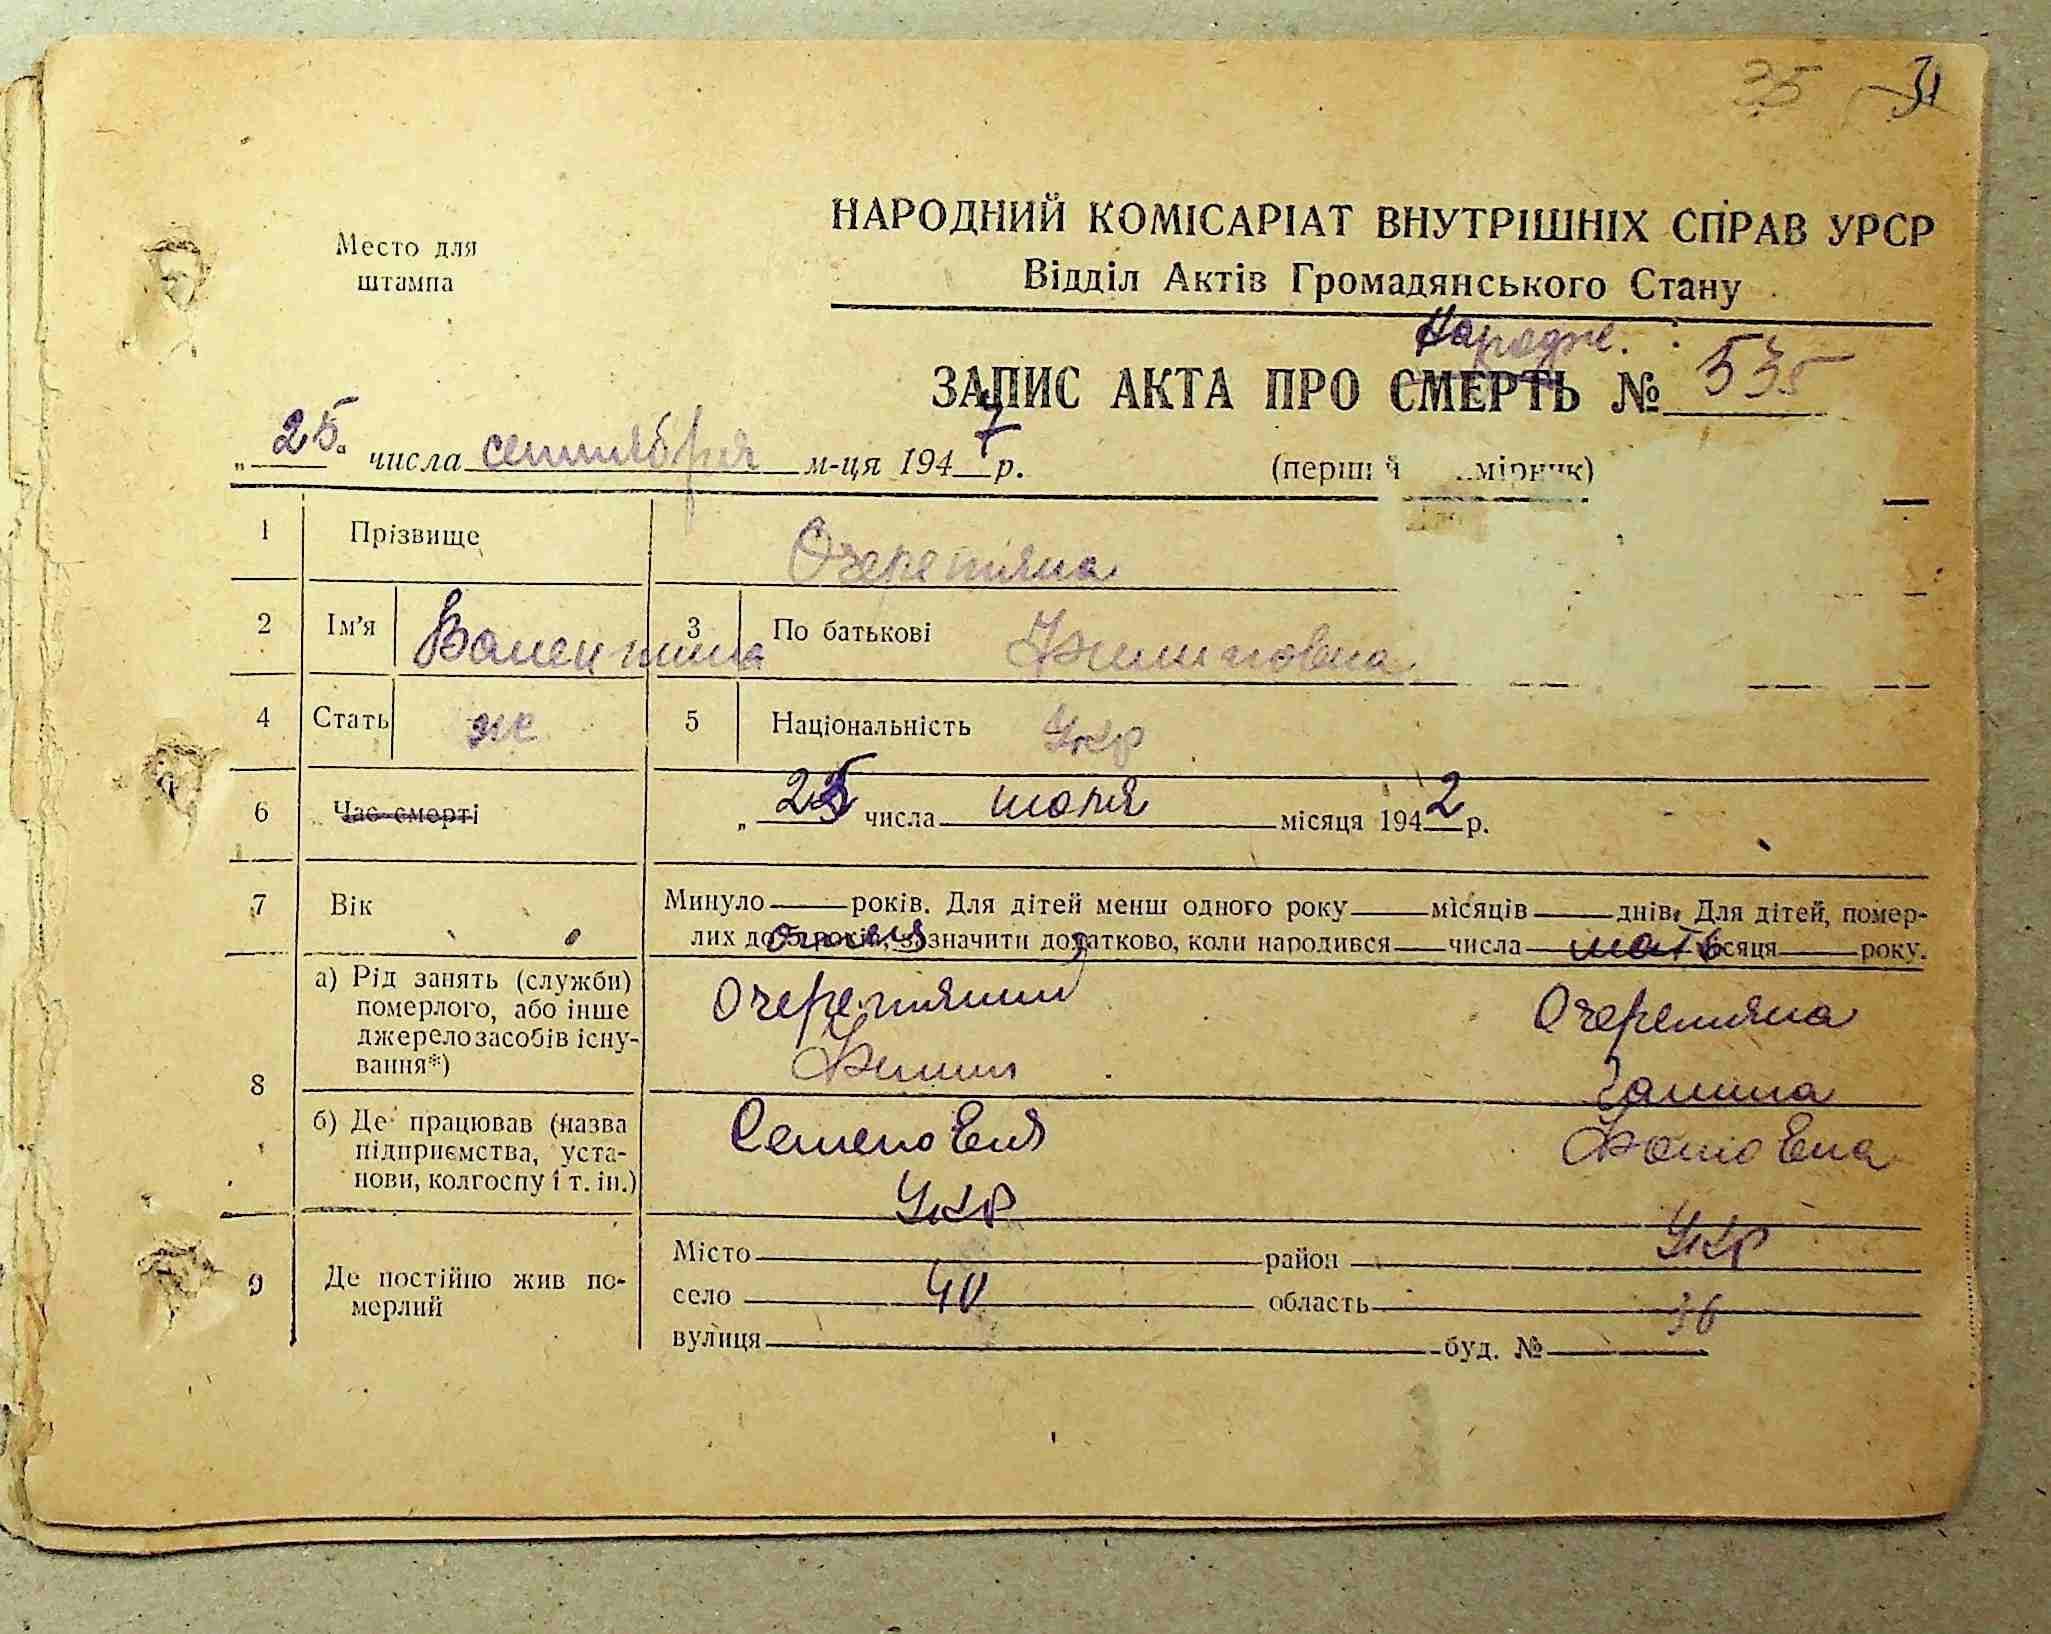 35 31
Место для
штампа
НАРОДНИЙ КОМІСАРІАТ ВНУТРІШНІХ СПРАВ УРСР
Відділ Актів Громадянського Стану
ЗАПИС АКТА ПРО СМЕРТЬ № 535
„25“ числа сентября м-ця 1947 р.
1 Прізвище Очеретяна
2 Ім'я Валентина 3 По батькові Филиповна
4 Стать ж 5 Національність Укр
6 Час смерті „ 25 числа июля місяця 1942 р.
7 Вік Минуло року років. Для дітей менш одного року місяців днів. Для дітей, помер-
лих до 5 років, зазначити додатково, коли народився числа місяця року.
отец мать
8 а) Рід занять (служби)
померлого, або інше
джерело засобів існу-
вання*)
Очеретяний Очеретяна
Филип Галина
б) Де працював (назва
підприємства, уста-
нови, колгоспу і т. ін.)
Семенович Фоновна
Укр Укр
9 Де постійно жив по-
мерлий
Місто район
село 40 область 36
вулиця буд. №